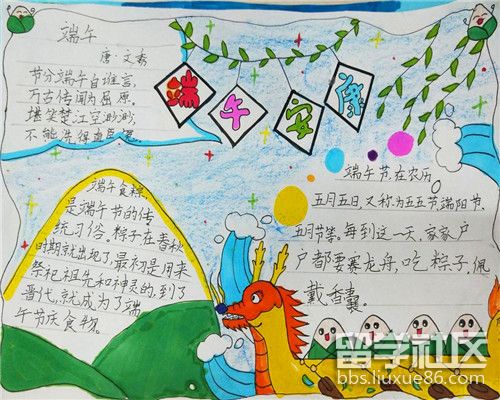 端午
唐 文秀
节分端午自谁言,
万古传闻为屈原。
堪笑楚江空渺渺,
不能洗得直臣
端午安康
端午食粽
是端午节的传
统习俗。粽子在春秋
时期就出现了,最初是用来
祭祀祖先和神灵的,到了
晋代,就成为了端
午节庆食物。
端午节,在农历
五月五日,又称为五五节端阳节、
五月节等。每到这一天,家家户
户都要赛龙舟,吃粽子,佩
戴香囊。
留学社区
bbs.liuxue86.com